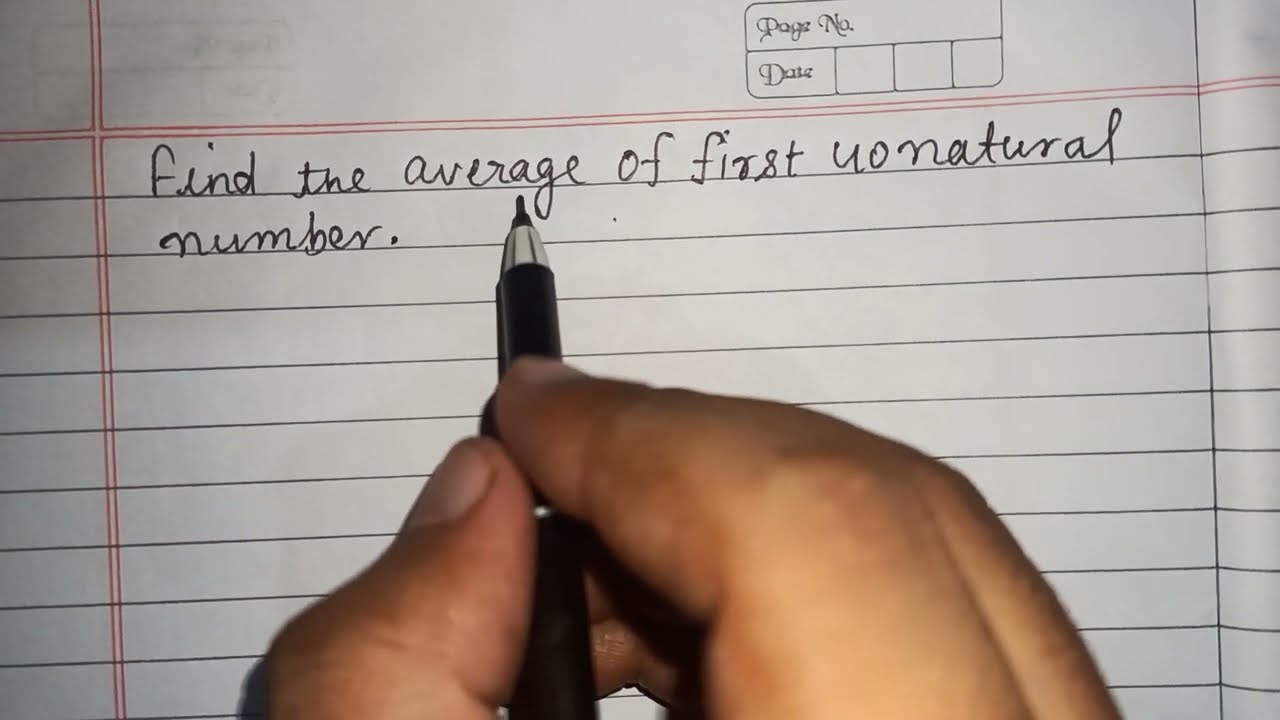 Page No.
Date
Find the average of first 40 natural
number.